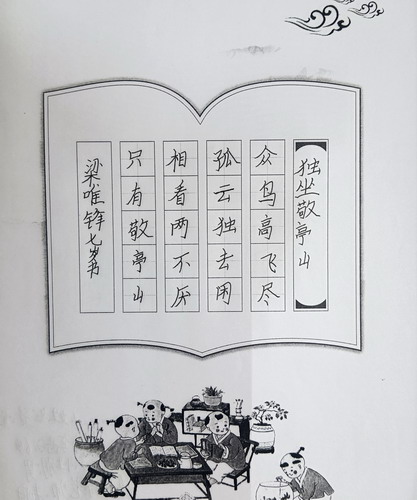 独坐敬亭山
众鸟高飞尽
孤云独去闲
相看两不厌
只有敬亭山
梁唯锋七岁书